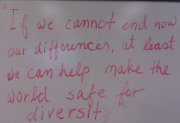 "If we cannot end now
our differences, at least
we can help make the
world safe for
diversity